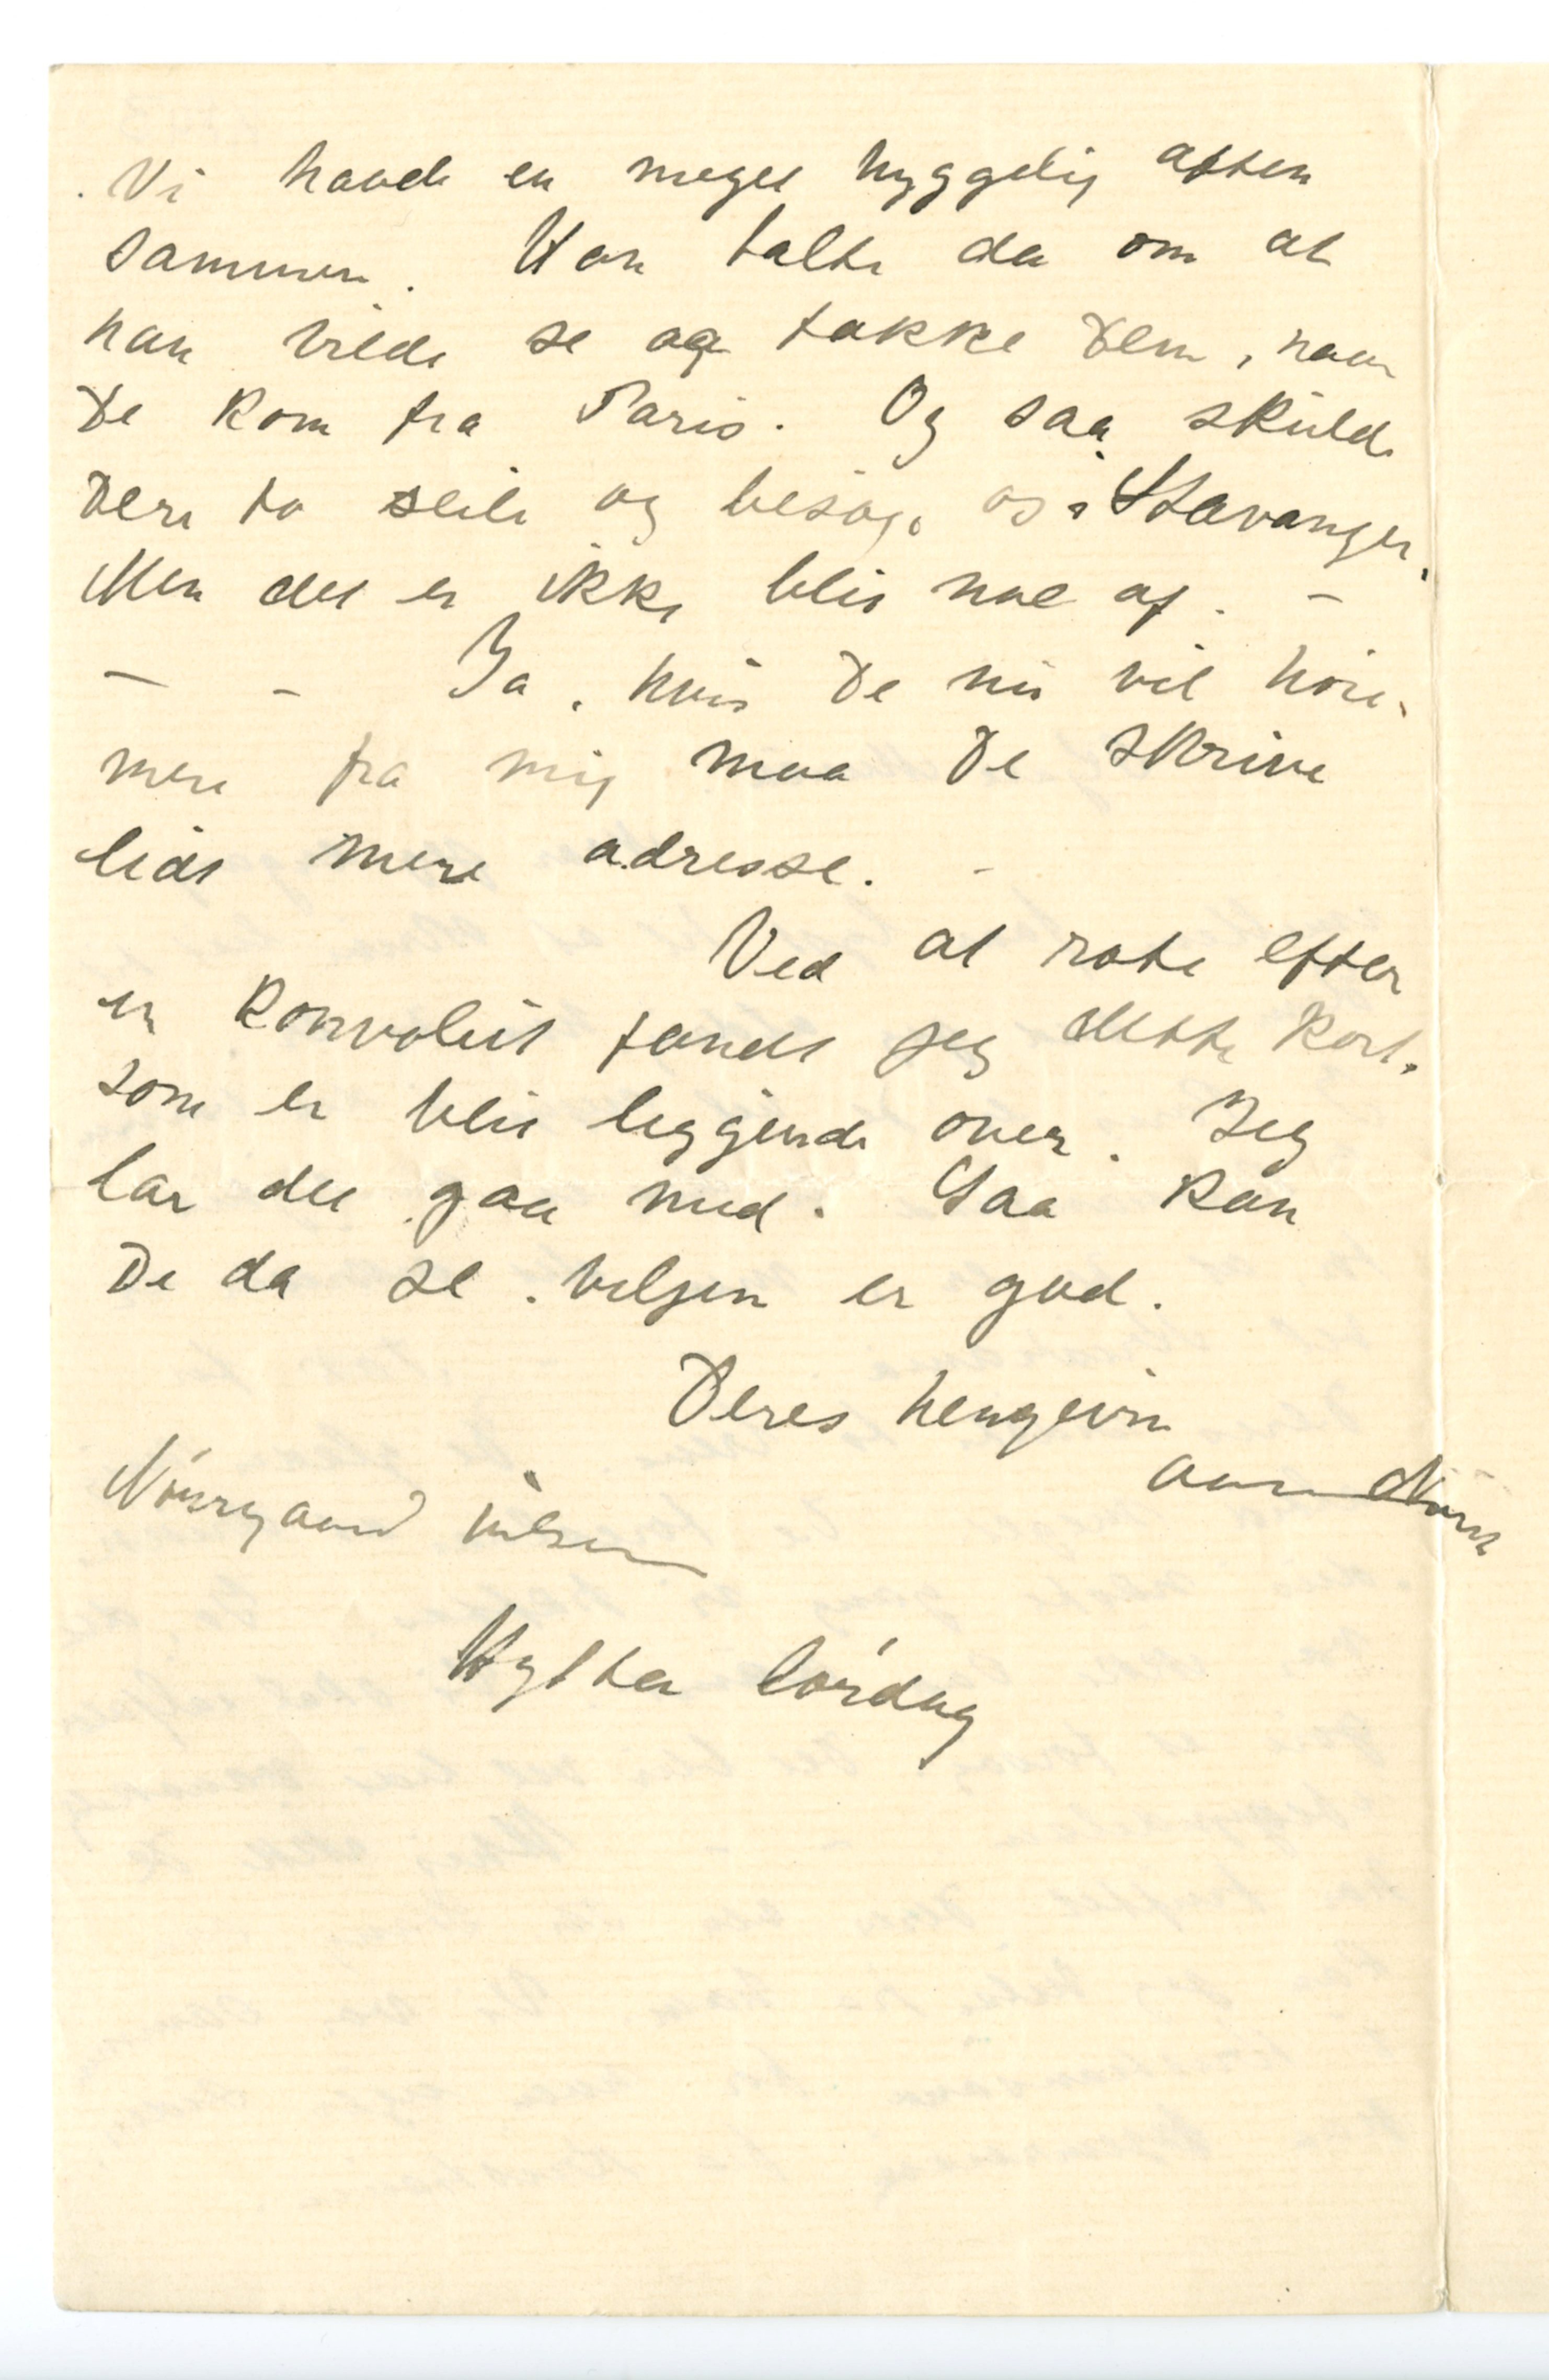 Vi havde en meget hyggelig aften
sammen. Han talte da om at
han vilde se og takke Dem, naar
De kom fra Paris. Og saa skulde
Dere to seile og besøge os i Stavanger.
Men det er ikke blit noe af. –
– – Ja, hvis De nu vil høre
mere fra mig maa De skrive
lidt mere adresse. –
Ved at rote efter
en konvolut fandt jeg dette kort,
som er blit liggende over. Jeg
lar det gaa med. Saa kan
De da se. viljen er god.
Deres hengivne
Nørregaard hilser
Hytten lørdag